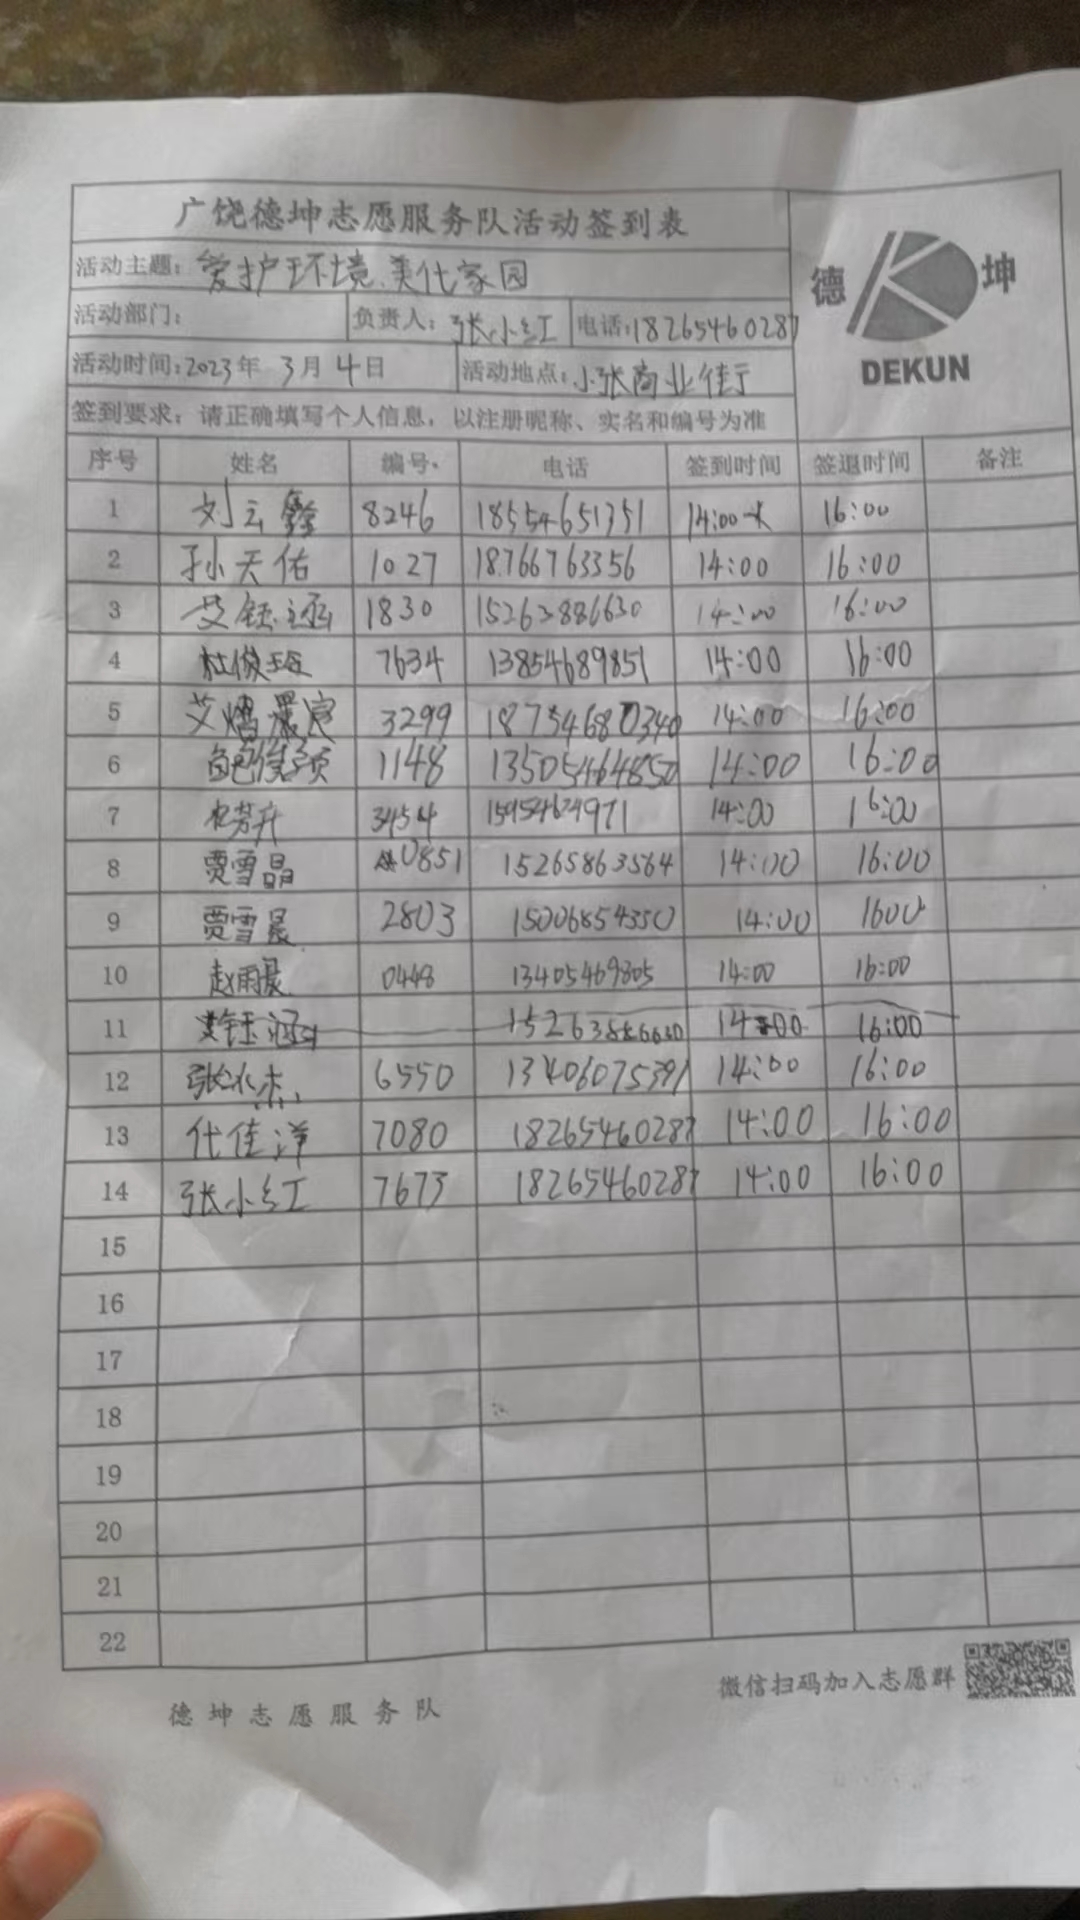 广饶德坤志愿服务队活动签到表
德 坤
DEKUN
活动主题：爱护环境、美化家园
活动部门： 负责人：张小红 电话：18265460287
活动时间：2023年 3月 4日 活动地点：小张商业街
签到要求：请正确填写个人信息，以注册昵称、实名和编号为准
序号 姓名 编号 电话 签到时间 签退时间 备注
1 刘云鑫 8246 18554651351 14:00 16:00
2 孙天佑 1027 18766763356 14:00 16:00
3 艾钰涵 1830 15263886630 14:00 16:00
4 杜俊班 7634 13854689851 14:00 16:00
5 艾 3299 14:00 16:00
6 1148 13505464850 14:00 16:00
7 3454 15954624971 14:00 16:00
8 贾雪晶 0851 15265863564 14:00 16:00
9 贾雪晨 2803 15006854350 14:00 1600
10 赵雨晨 0448 13405469805 14:00 16:00
11 钰涵 15263886630 14:00 16:00
12 张水杰 6550 13406075391 14:00 16:00
13 代佳洋 7080 18265460287 14:00 16:00
14 张小红 7673 18265460287 14:00 16:00
15
16
17
18
19
20
21
22
微信扫码加入志愿群
德坤志愿服务队